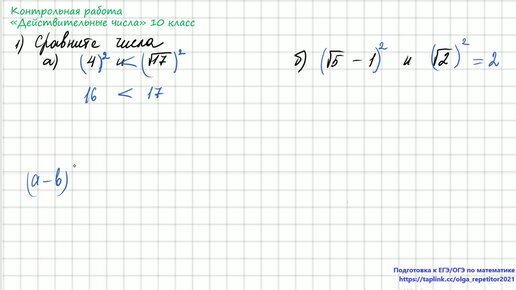 Контрольная работа
«Действительные числа» 10 класс
1) Сравните числа
а) (4)² и < (√17)²
б) (√5 − 1)² и (√2)² = 2
16 < 17
(a−b)
Подготовка к ЕГЭ/ОГЭ по математике
https://taplink.cc/olga_repetitor2021